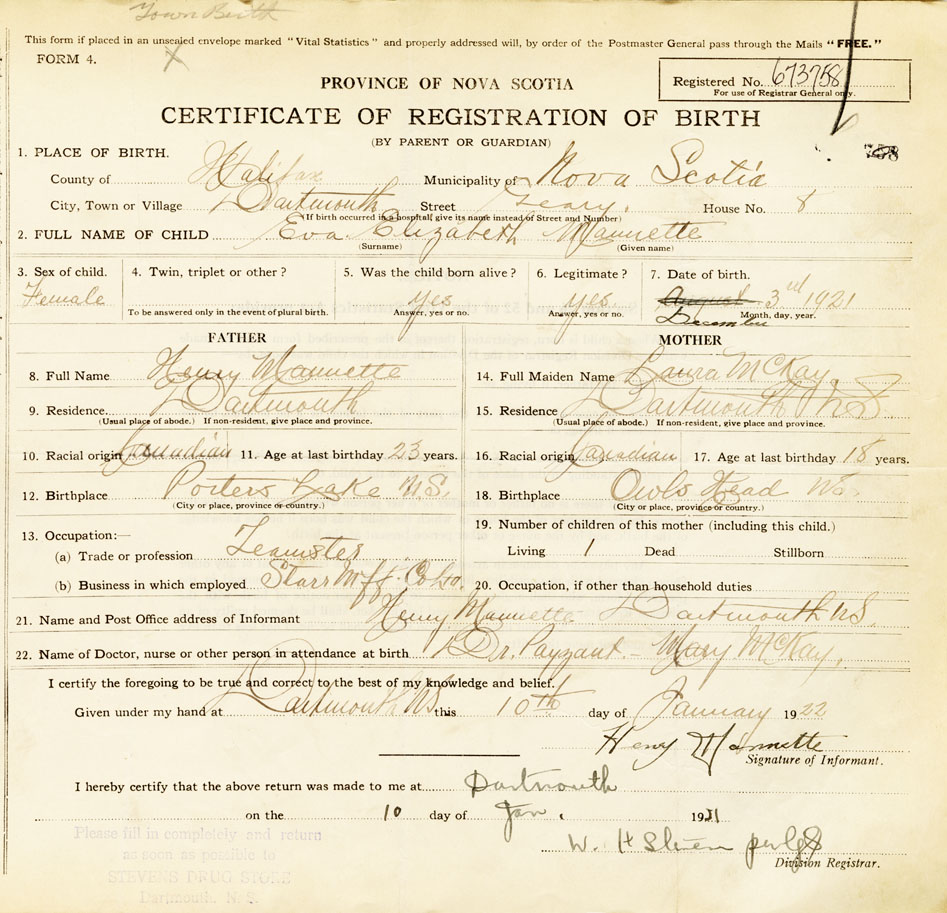 Town Birth
This form if placed in an unsealed envelope marked "Vital Statistics" and properly addressed will, by order of the Postmaster General pass through the Mails "FREE."
FORM 4. X
PROVINCE OF NOVA SCOTIA
Registered No. 673758
For use of Registrar General only.
CERTIFICATE OF REGISTRATION OF BIRTH
(BY PARENT OR GUARDIAN)
758
1. PLACE OF BIRTH.
County of Halifax Municipality of Nova Scotia
City, Town or Village Dartmouth Street Geary. House No. 8
(If birth occurred in a hospital, give its name instead of Street and Number)
2. FULL NAME OF CHILD Eva Elizabeth Mannette
(Surname) (Given name)
3. Sex of child. 4. Twin, triplet or other? 5. Was the child born alive? 6. Legitimate? 7. Date of birth.
Female yes yes. August 3rd 1921
December
To be answered only in the event of plural birth. Answer, yes or no. Answer, yes or no. Month, day, year.
FATHER MOTHER
8. Full Name Henry Mannette 14. Full Maiden Name Laura McKay.
9. Residence. Dartmouth 15. Residence Dartmouth NS
(Usual place of abode.) If non-resident, give place and province. (Usual place of abode.) If non-resident, give place and province.
10. Racial origin Canadian 11. Age at last birthday 23 years. 16. Racial origin Canadian 17. Age at last birthday 18 years.
12. Birthplace Porters Lake N.S. 18. Birthplace Owls Head NS.
(City or place, province or country.) (City or place, province or country.)
13. Occupation:— 19. Number of children of this mother (including this child.)
(a) Trade or profession Teamster Living 1 Dead Stillborn
(b) Business in which employed Starr Mfg. Co Ltd. 20. Occupation, if other than household duties
21. Name and Post Office address of Informant Henry Mannette Dartmouth NS.
22. Name of Doctor, nurse or other person in attendance at birth Dr. Payzant - Mary McKay.
I certify the foregoing to be true and correct to the best of my knowledge and belief.
Given under my hand at Dartmouth NS this 10th day of January 1922
Henry Mannette
Signature of Informant.
I hereby certify that the above return was made to me at Dartmouth
on the 10 day of Jan. 19
W. H
Division Registrar.
Please fill in completely and return
as soon as possible to
STEVENS DRUG STORE
Dartmouth, N. S.